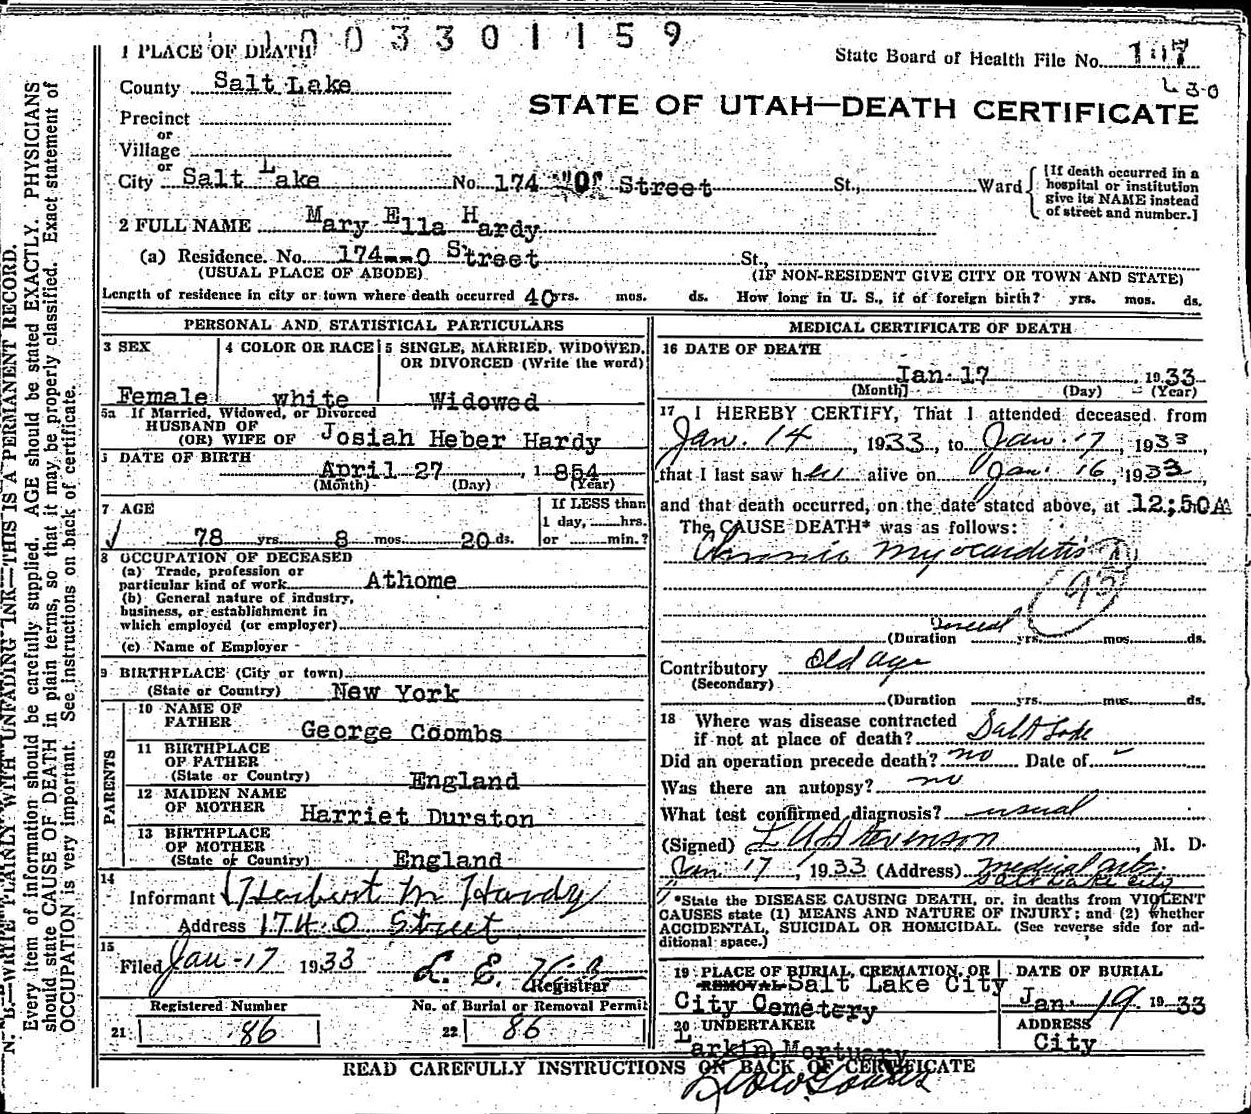 1003301159
1 PLACE OF DEATH
State Board of Health File No. 107
430
County Salt Lake
STATE OF UTAH—DEATH CERTIFICATE
Precinct
or
Village
or
City Salt Lake No. 174 "O" Street St., Ward
[If death occurred in a hospital or institution give its NAME instead of street and number.]
2 FULL NAME Mary Ella Hardy
(a) Residence. No. 174--O Street St.,
(USUAL PLACE OF ABODE) (IF NON-RESIDENT GIVE CITY OR TOWN AND STATE)
Length of residence in city or town where death occurred 40 yrs. mos. ds. How long in U. S., if of foreign birth? yrs. mos. ds.
PERSONAL AND STATISTICAL PARTICULARS
3 SEX
Female
4 COLOR OR RACE
white
5 SINGLE, MARRIED, WIDOWED,
OR DIVORCED (Write the word)
Widowed
5a If Married, Widowed, or Divorced
HUSBAND OF
(OR) WIFE OF Josiah Heber Hardy
DATE OF BIRTH
April 27, 1854
(Month) (Day) (Year)
7 AGE
78 yrs. 8 mos. 20 ds.
If LESS than
1 day, hrs.
or min.?
8 OCCUPATION OF DECEASED
(a) Trade, profession or
particular kind of work Athome
(b) General nature of industry,
business, or establishment in
which employed (or employer)
(c) Name of Employer
9 BIRTHPLACE (City or town)
(State or Country) New York
PARENTS
10 NAME OF
FATHER George Coombs
11 BIRTHPLACE
OF FATHER
(State or Country) England
12 MAIDEN NAME
OF MOTHER Harriet Durston
13 BIRTHPLACE
OF MOTHER
(State or Country) England
14
Informant Herbert M Hardy
Address 174 O Street
15
Filed Jan-17 1933 L. E.
Registrar
Registered Number
21 86
No. of Burial or Removal Permit
22 86
MEDICAL CERTIFICATE OF DEATH
16 DATE OF DEATH
Jan 17, 1933
(Month) (Day) (Year)
17 I HEREBY CERTIFY, That I attended deceased from
Jan. 14, 1933, to Jan. 17, 1933,
that I last saw her alive on Jan. 16, 1933
and that death occurred, on the date stated above, at 12;50A
The CAUSE DEATH* was as follows:
Chronic myocarditis
93
(Duration several yrs. mos. ds.
Contributory Old age
(Secondary)
(Duration yrs. mos. ds.
18 Where was disease contracted
if not at place of death? Salt Lake
Did an operation precede death? no Date of
Was there an autopsy? no
What test confirmed diagnosis? usual
(Signed) L A Stevenson, M. D.
Jan 17, 1933 (Address) Medical arts
Salt Lake City
*State the DISEASE CAUSING DEATH, or, in deaths from VIOLENT
CAUSES state (1) MEANS AND NATURE OF INJURY; and (2) whether
ACCIDENTAL, SUICIDAL OR HOMICIDAL. (See reverse side for ad-
ditional space.)
19 PLACE OF BURIAL, CREMATION, OR
REMOVAL Salt Lake City
City Cemetery
DATE OF BURIAL
Jan. 19 1933
20 UNDERTAKER
Larkin Mortuary
ADDRESS
City
READ CAREFULLY INSTRUCTIONS ON BACK OF CERTIFICATE
N. B.—WRITE PLAINLY WITH UNFADING INK—THIS IS A PERMANENT RECORD.
Every item of information should be carefully supplied. AGE should be stated EXACTLY. PHYSICIANS
should state CAUSE OF DEATH in plain terms, so that it may be properly classified. Exact statement of
OCCUPATION is very important. See instructions on back of certificate.